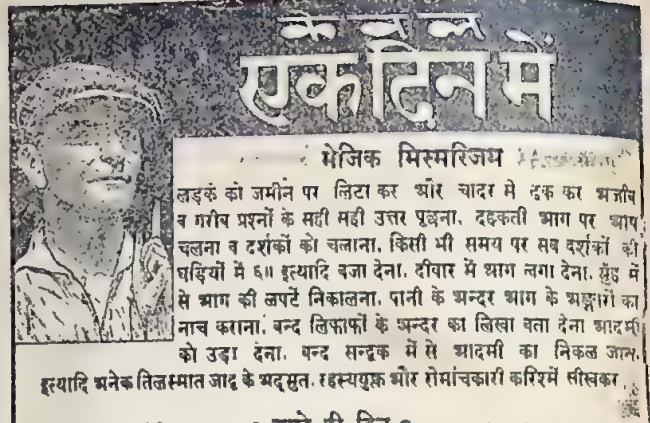 केवल
एक दिन में
मेजिक मिस्मरिजम
लड़के को जमीन पर लिटा कर और चादर मे ढक कर अजीब
व गरीब प्रश्नों के सही सही उत्तर पूछना. दहकती आग पर आप
चलना व दर्शकों को चलाना. किसी भी समय पर सब दर्शकों की
घड़ियों में ६॥ इत्यादि बजा देना. दीवार में आग लगा देना. मुँह में
से आग की लपटें निकालना. पानी के अन्दर आग के अङ्गारों का
नाच कराना. बन्द लिफाफों के अन्दर का लिखा बता देना आदमी
को उड़ा देना. बन्द सन्दूक में से आदमी का निकल जाना.
इत्यादि अनेक तिलस्मात जादू के अद्भुत. रहस्ययुक्त और रोमांचकारी करिश्में सीखकर